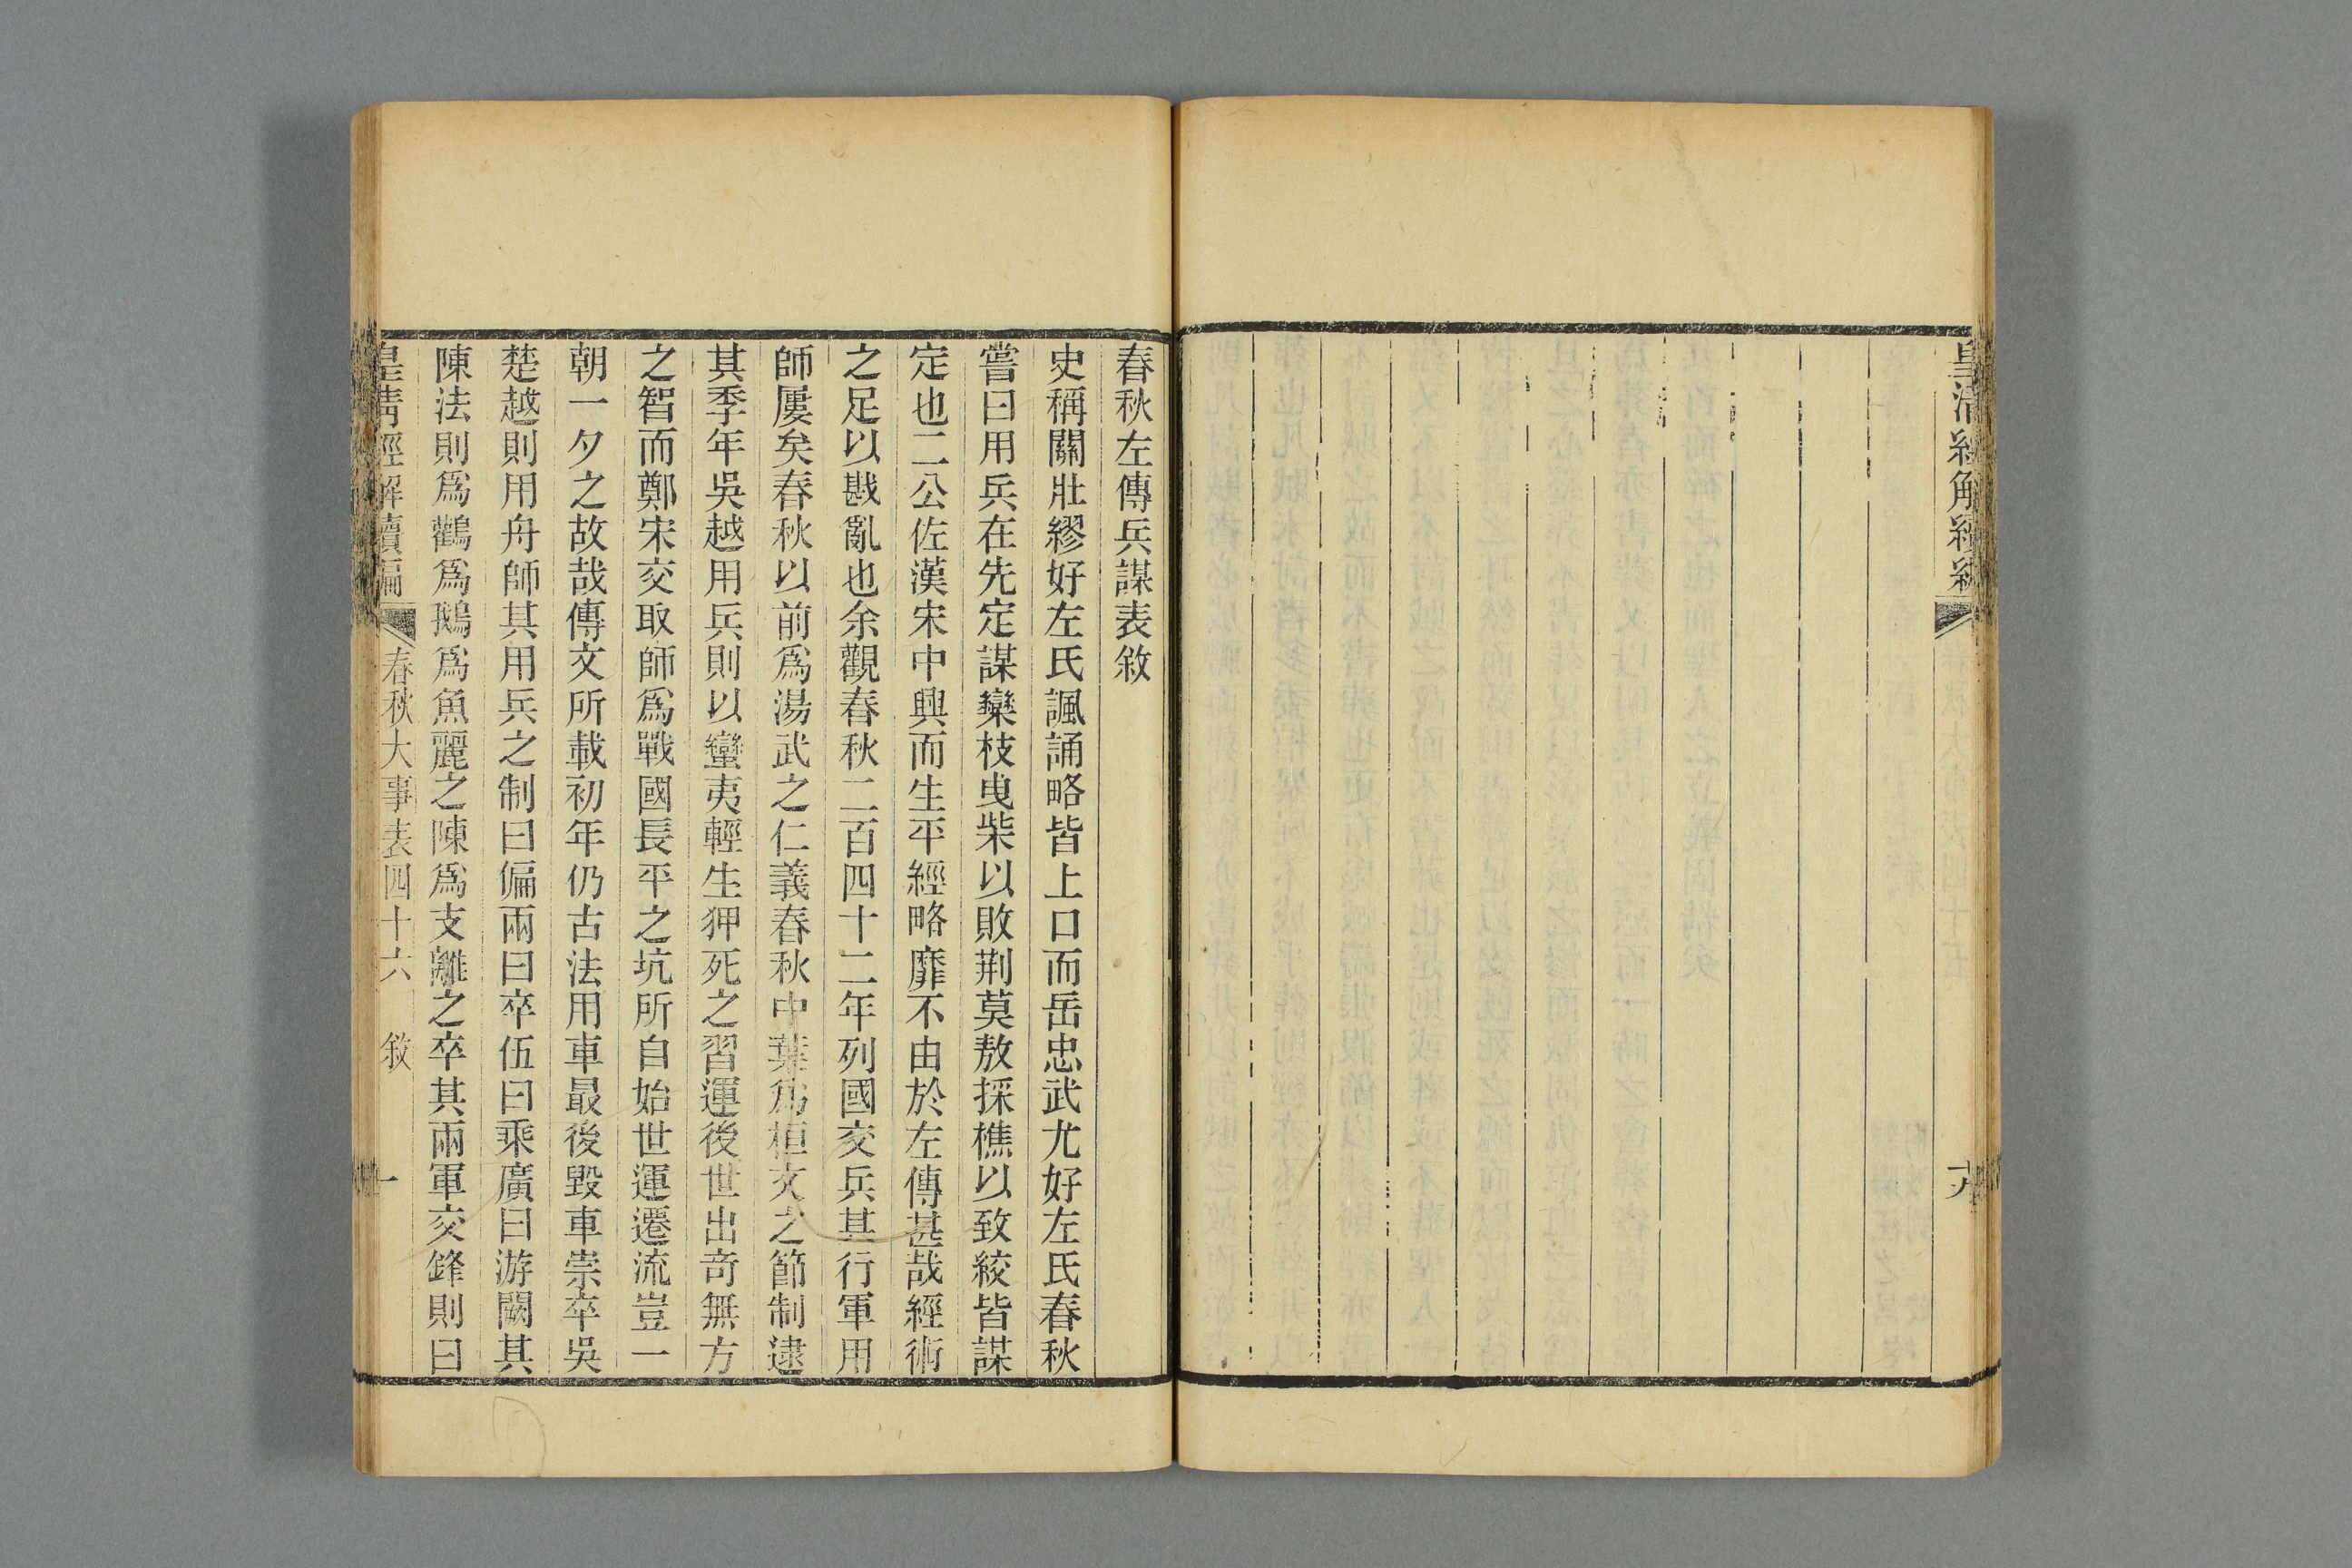 皇清經解續編
十九
春秋左傳兵謀表敘
史稱關壯繆好左氏諷誦略皆上口而岳忠武尤好左氏春秋
嘗曰用兵在先定謀欒枝曳柴以敗荆莫敖採樵以致絞皆謀
定也二公佐漢宋中興而生平經略靡不由於左傳甚哉經術
之足以戡亂也余觀春秋二百四十二年列國交兵其行軍用
師屢矣春秋以前爲湯武之仁義春秋中葉爲桓文之節制逮
其季年吳越用兵則以蠻夷輕生狎死之習運後世出奇無方
之智而鄭宋交取師爲戰國長平之坑所自始世運遷流豈一
朝一夕之故哉傳文所載初年仍古法用車最後毀車崇卒吳
楚越則用舟師其用兵之制曰偏兩曰卒伍曰乘廣曰游闕其
陳法則爲鸛爲鵝爲魚麗之陳爲支離之卒其兩軍交鋒則曰
皇清經解續編
春秋大事表四十六 敘
一